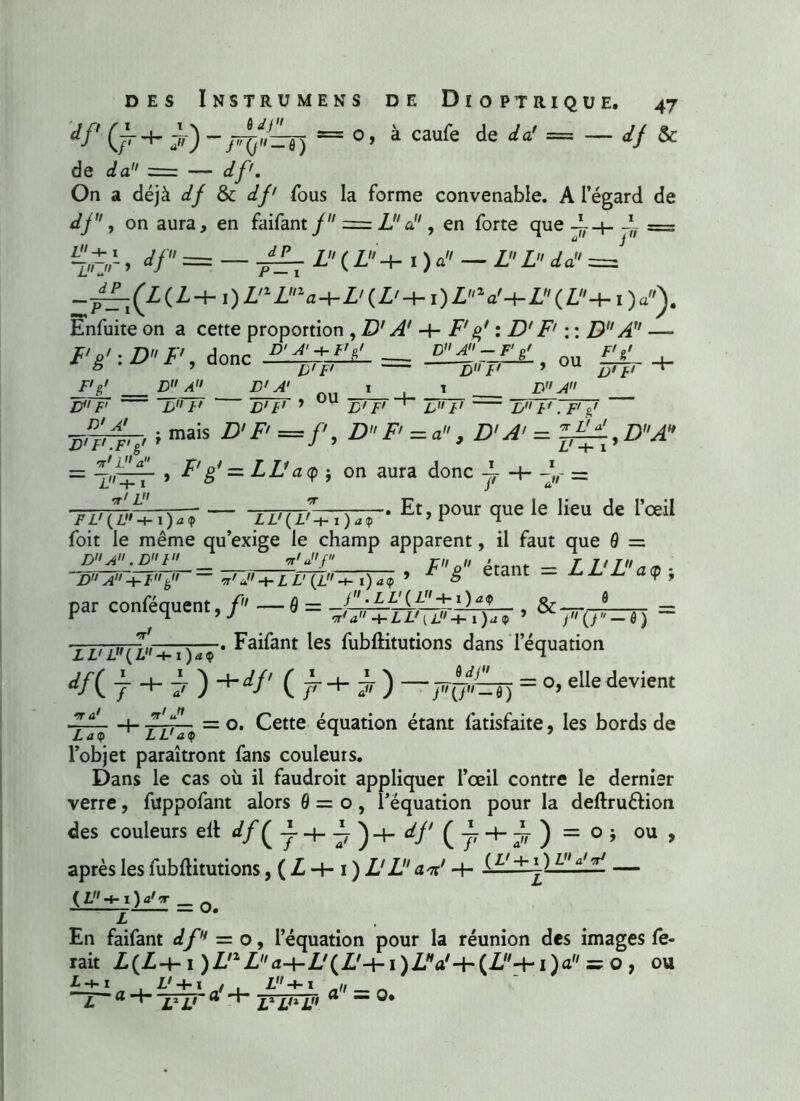 DES INSTRUMENS DE DIOPTRIQUE. 47
df' (1/f' + 1/a'') − θdf''/f''(f''−θ) = 0, à caufe de da' = — df &
de da'' = — df'.
On a déjà df & df' fous la forme convenable. A l'égard de
df'', on aura, en faifant f'' = L''a'', en forte que 1/a'' + 1/f'' =
L''+1/L''a'', df'' = — dP/P−1 L''(L''+1)a'' — L''L''da'' =
−dP/P−1 (L(L+1)L'²L''²a+L'(L'+1)L''²a'+L''(L''+1)a'').
Enfuite on a cette proportion, D'A' + F'g' : D'F' :: D''A'' —
F'g' : D''F', donc D'A'+F'g'/D'F' = D''A''−F'g'/D''F', ou F'g'/D'F' +
F'g'/D''F' = D''A''/D''F' — D'A'/D'F', ou 1/D'F' + 1/D''F' = D''A''/D''F'.F'g' —
D'A'/D'F'.F'g' ; mais D'F' = f', D''F' = a'', D'A' = πL'a'/L'+1, D''A''
= π'L''a''/L''+1, F'g' = LL'aφ ; on aura donc 1/f' + 1/a'' =
π'L''/FL'(L''+1)aφ — π/LL'(L'+1)aφ. Et, pour que le lieu de l'œil
foit le même qu'exige le champ apparent, il faut que θ =
D''A''.D''F''/D''A''+F''g'' = π'a''f''/π'a''+LL'(L''+1)aφ, F''g'' étant = LL'L''aφ ;
par conféquent, f'' — θ = f''.LL'(L''+1)aφ/π'a''+LL'(L''+1)aφ, & θ/f''(f''−θ) =
π'/LL'L''(L''+1)aφ. Faifant les fubftitutions dans l'équation
df( 1/f + 1/a' ) + df' ( 1/f' + 1/a'' ) — θdf''/f''(f''−θ) = 0, elle devient
πa'/Laφ + π'a''/LL'aφ = 0. Cette équation étant fatisfaite, les bords de
l'objet paraîtront fans couleurs.
Dans le cas où il faudroit appliquer l'œil contre le dernier
verre, fuppofant alors θ = 0, l'équation pour la deftruction
des couleurs eft df( 1/f + 1/a' ) + df' ( 1/f' + 1/a'' ) = 0 ; ou,
après les fubftitutions, ( L + 1 ) L'L''aπ' + (L'+1)L''a'π'/L —
(L''+1)a'π/L = 0.
En faifant df'' = 0, l'équation pour la réunion des images fe-
rait L(L+1)L'²L''a+L'(L'+1)L''a'+(L''+1)a'' = 0, ou
L+1/L a + L'+1/L²L' a' + L''+1/L²L'²L'' a'' = 0.